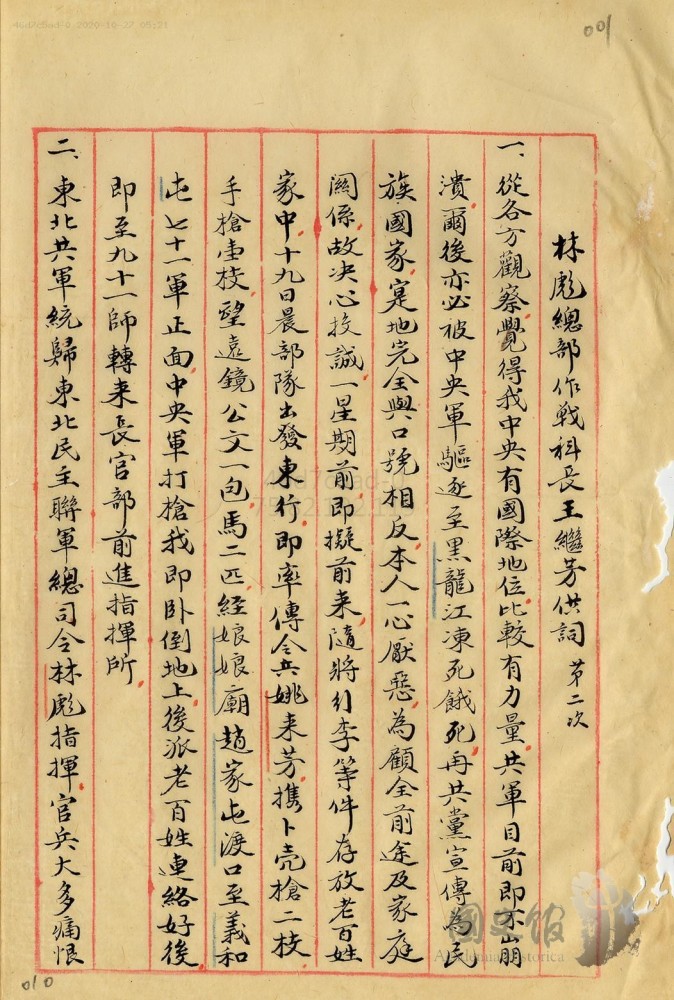 001
林彪總部作戰科長王繼芳供詞 第二次
一、從各方觀察,覺得我中央有國際地位,比較有力量,共軍目前即不崩
潰,爾後亦必被中央軍驅逐至黑龍江凍死餓死,再共黨宣傳為民
族國家,寔地完全與口號相反,本人一心厭惡,為顧全前途及家庭
關係,故决心投誠,一星期前即擬前来,隨將行李等件存放老百姓
家中,十九日晨部隊出發東行,即率傳令兵姚来芳,携卜壳槍二枝,
手槍壹枝,望遠鏡公文一包馬二匹,經娘娘廟趙家屯渡口至義和
屯七十一軍正面,中央軍打槍我即卧倒地上,後派老百姓連絡好後
即至九十一師轉来長官部前進指揮所,
二、東北共軍統歸東北民主聯軍總司令林彪指揮,官兵大多痛恨
010
國史館
Academia Historica